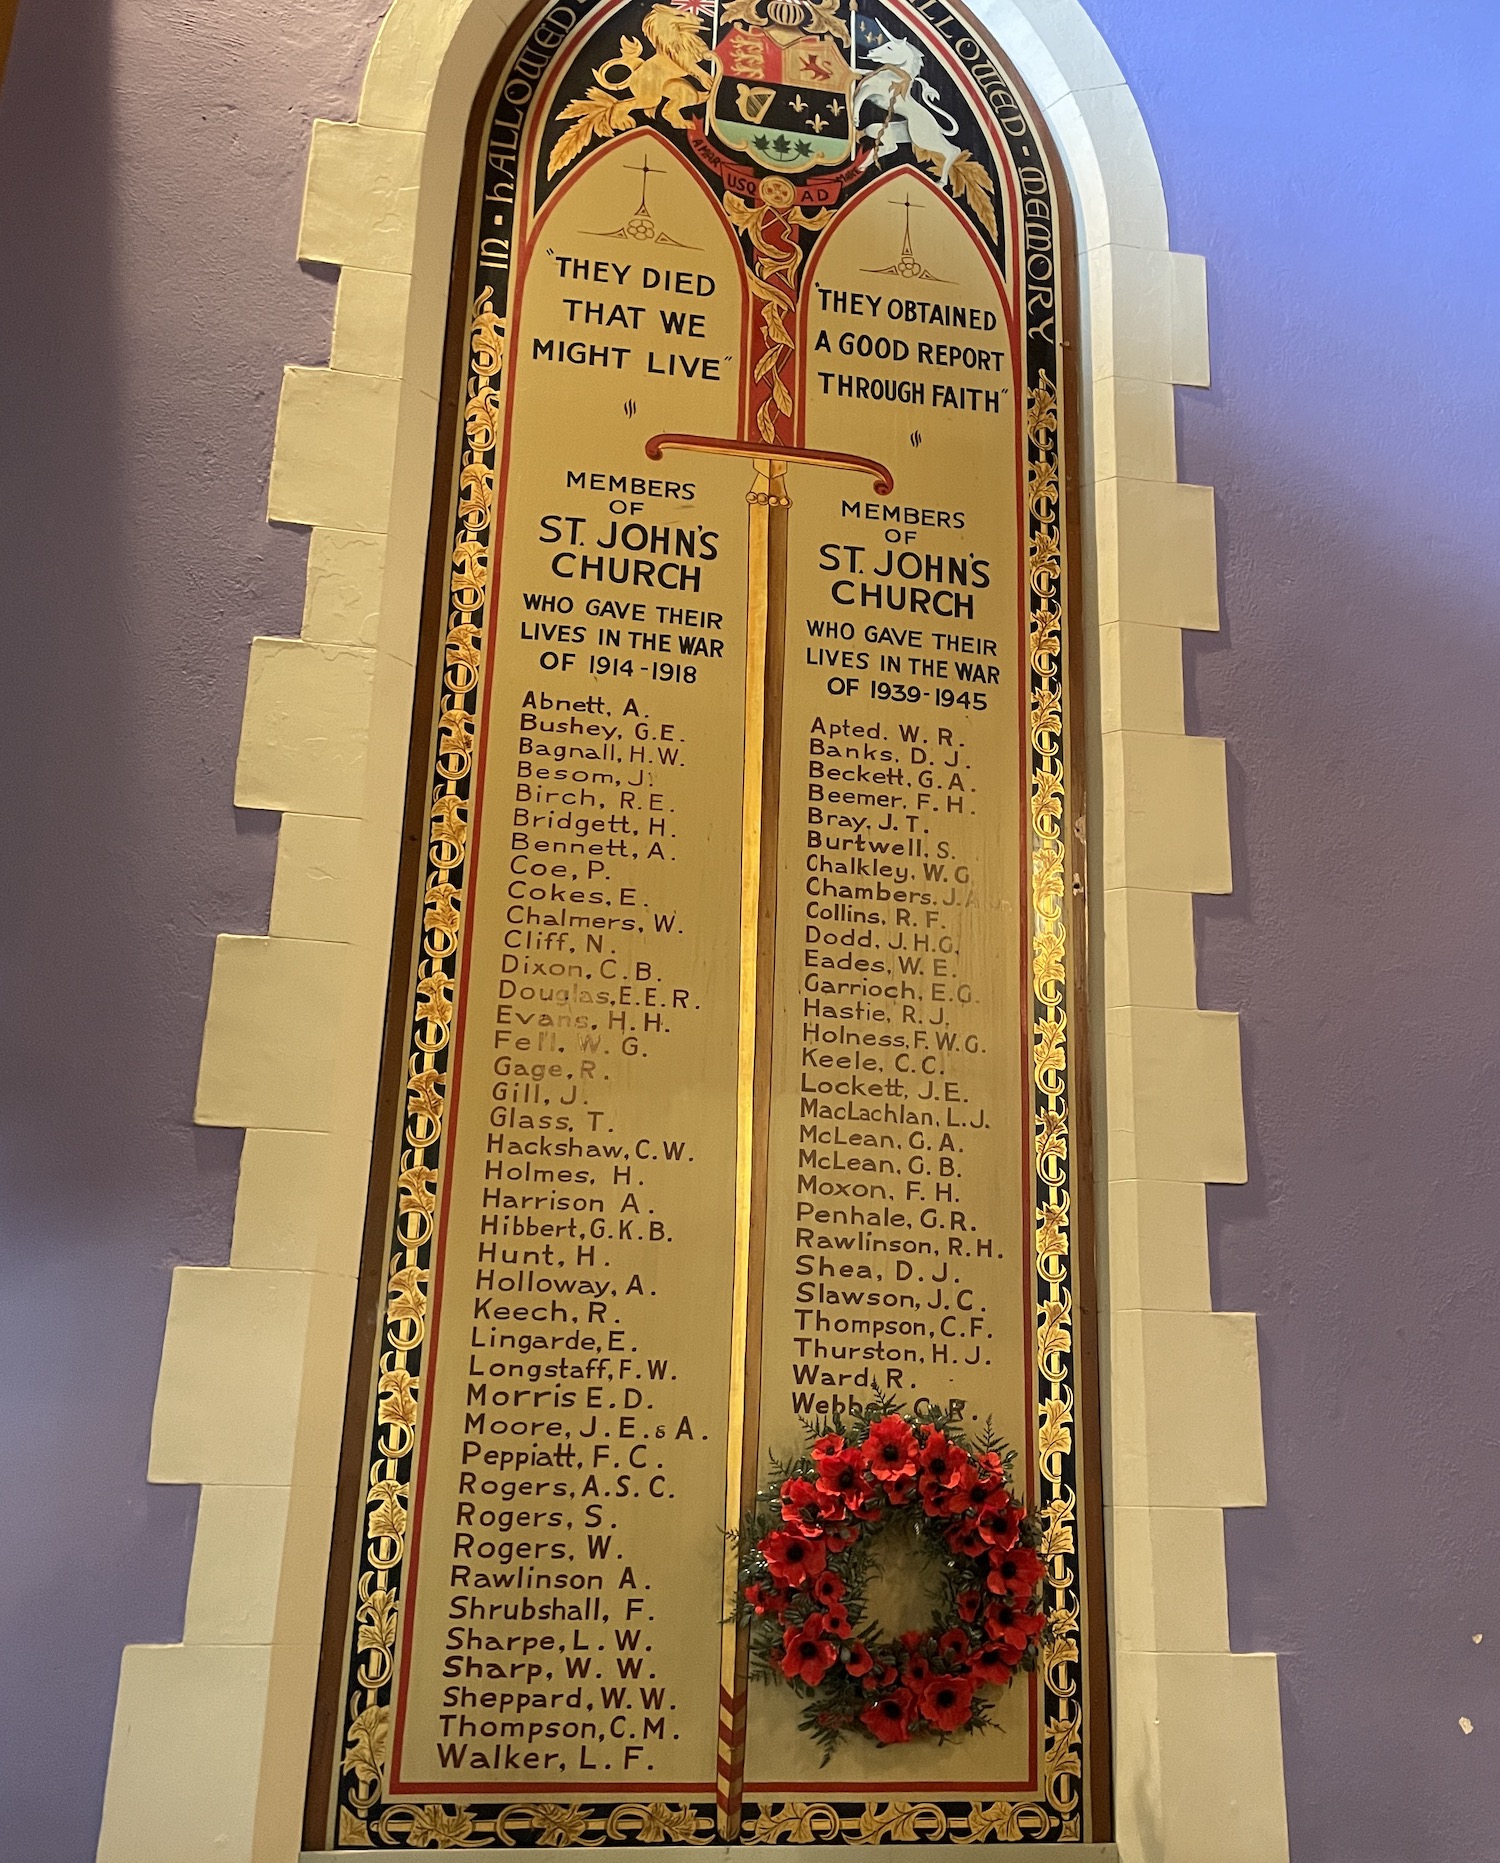 IN · HALLOWED
HALLOWED · MEMORY
A MARI
USQ
AD
MARE
"THEY DIED
THAT WE
MIGHT LIVE"
MEMBERS
OF
ST. JOHN'S
CHURCH
WHO GAVE THEIR
LIVES IN THE WAR
OF 1914-1918
Abnett, A.
Bushey, G.E.
Bagnall, H.W.
Besom, J.
Birch, R.E.
Bridgett, H.
Bennett, A.
Coe, P.
Cokes, E.
Chalmers, W.
Cliff, N.
Dixon, C.B.
Douglas, E.E.R.
Evans, H.H.
Fell, W.G.
Gage, R.
Gill, J.
Glass, T.
Hackshaw, C.W.
Holmes, H.
Harrison A.
Hibbert, G.K.B.
Hunt, H.
Holloway, A.
Keech, R.
Lingarde, E.
Longstaff, F.W.
Morris E.D.
Moore, J.E. & A.
Peppiatt, F.C.
Rogers, A.S.C.
Rogers, S.
Rogers, W.
Rawlinson A.
Shrubshall, F.
Sharpe, L.W.
Sharp, W.W.
Sheppard, W.W.
Thompson, C.M.
Walker, L.F.
"THEY OBTAINED
A GOOD REPORT
THROUGH FAITH"
MEMBERS
OF
ST. JOHN'S
CHURCH
WHO GAVE THEIR
LIVES IN THE WAR
OF 1939-1945
Apted. W.R.
Banks, D.J.
Beckett, G.A.
Beemer, F.H.
Bray, J.T.
Burtwell, S.
Chalkley, W.G.
Chambers, J.A. Jr.
Collins, R.F.
Dodd, J.H.G.
Eades, W.E.
Garrioch, E.G.
Hastie, R.J.
Holness, F.W.G.
Keele, C.C.
Lockett, J.E.
MacLachlan, L.J.
McLean, G.A.
McLean, G.B.
Moxon, F.H.
Penhale, G.R.
Rawlinson, R.H.
Shea, D.J.
Slawson, J.C.
Thompson, C.F.
Thurston, H.J.
Ward, R.
R.